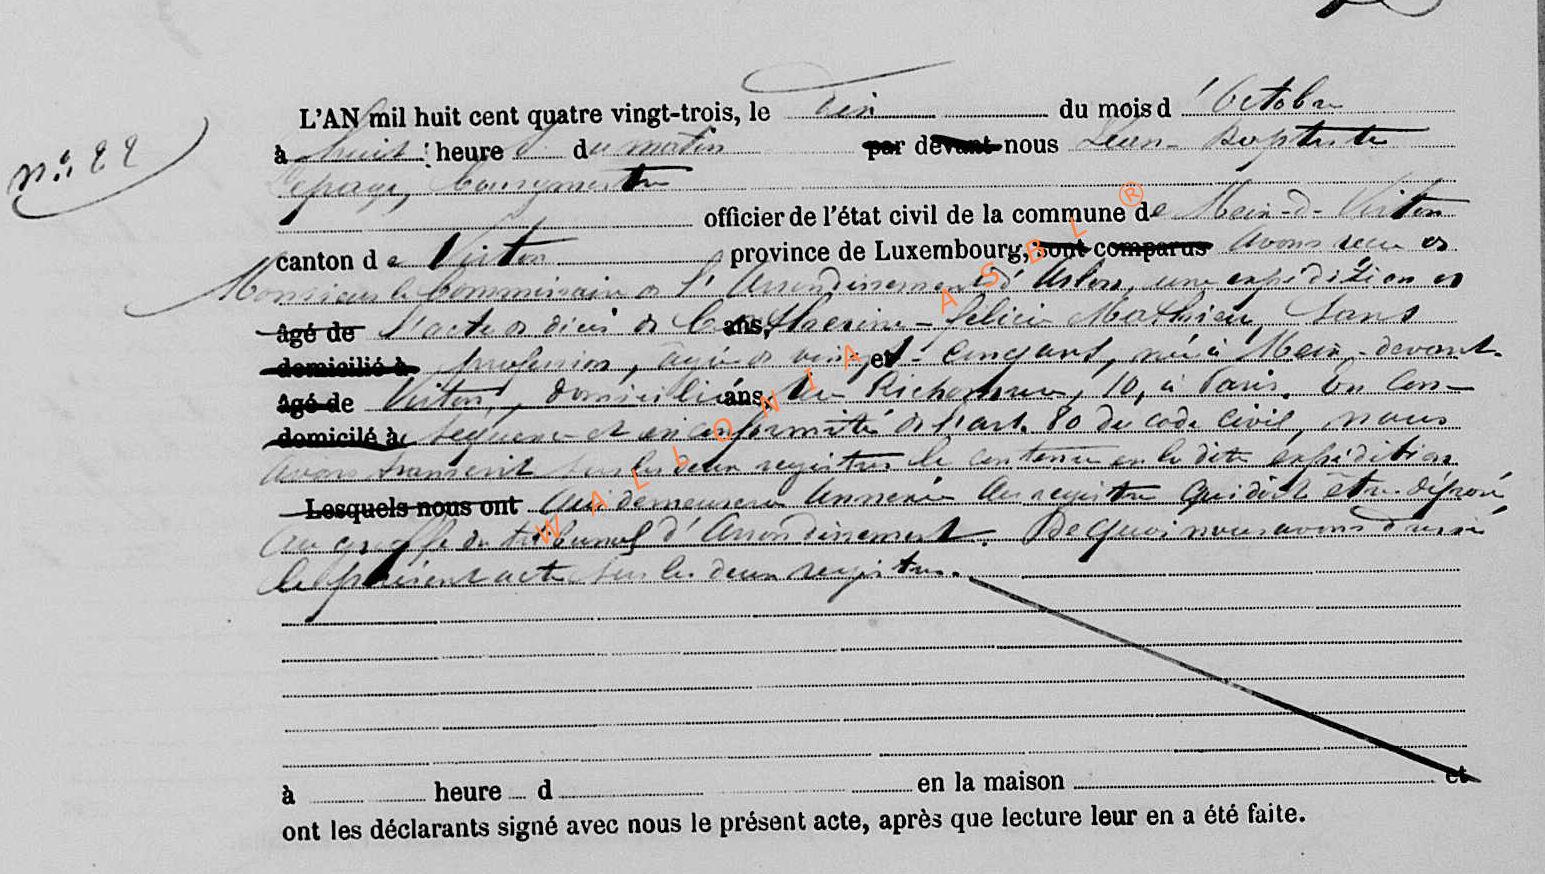 L'AN mil huit cent quatre vingt-trois, le dix du mois d'Octobre
n° 22
à huit heures du matin par devant nous Jean-Baptiste
Lepage, bourgmestre
officier de l'état civil de la commune de Meix-d-Virton
canton de Virton province de Luxembourg, sont comparus avons recu de
Monsieur le Commissaire de l'Arrondissement d'Arlon, une expédition de
Agé de l'acte de décès de Catherine-Félicie Mathieu, sans ans,
domicilié à profession, âgée de vingt-cinq ans, née à Meix-devant- et
Agé de Virton, domiciliée rue Richepanse, 10, à Paris. En con- ans,
domicilé à séquence et en conformité de l'art. 80 du code civil, nous
avons transcrit sur les deux registres le contenu en la dite expédition
Lesquels nous ont qui demeurera annexée au registre qui doit être déposé
au greffe du tribunal d'Arrondissement. De quoi nous avons dressé
le présent acte sur les deux registres.
à heure d en la maison et
ont les déclarants signé avec nous le présent acte, après que lecture leur en a été faite.
WALLONIA ASBL ®